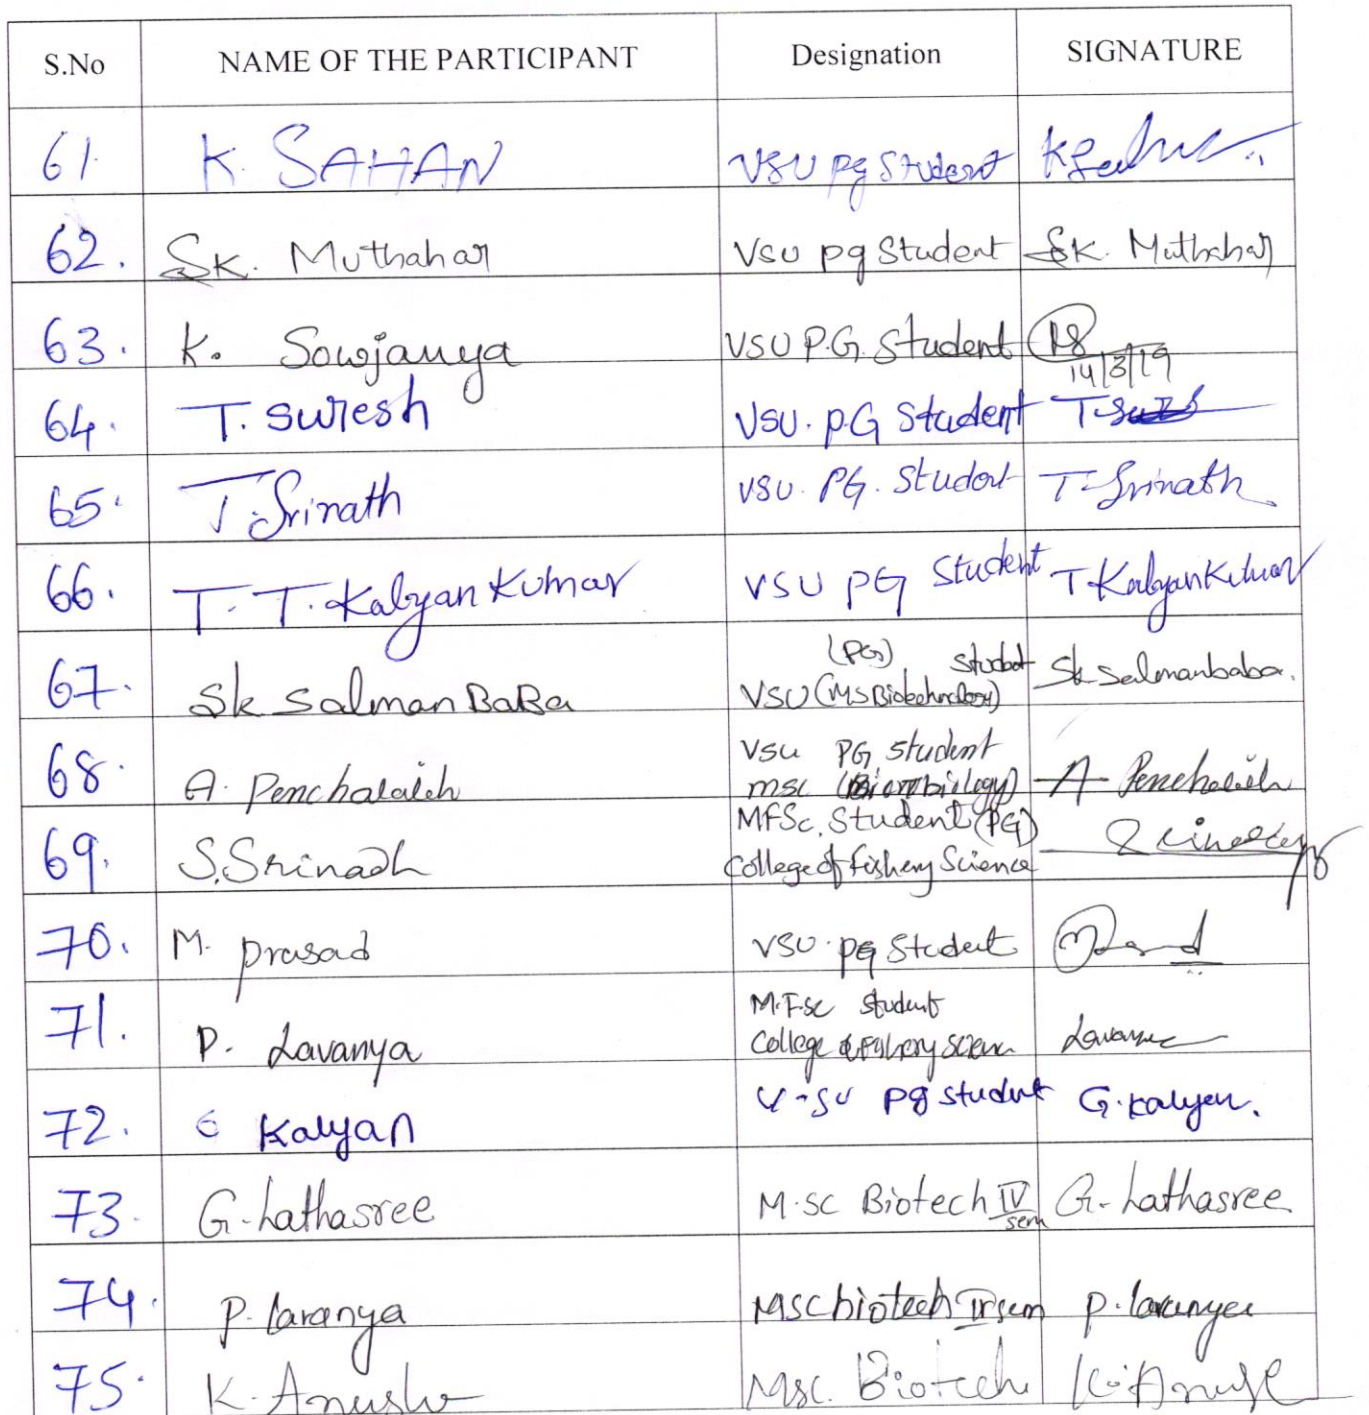 S.No NAME OF THE PARTICIPANT Designation SIGNATURE
61. K. SAHAN VSU pg Student
62. Sk. Muthahar VSU pg Student Sk. Muthahar
63. K. Sowjanya VSU P.G. Student
14/3/19
64. T. Suresh VSU. P.G Student
65. T. Srinath VSU. PG. Student T. Srinath
66. T. T. Kalyan Kumar VSU PG Student T Kalyan Kumar
(PG) Student
67. Sk Salman BaBa VSU (MS Biotechnology) Sk Salmanbaba.
VSU PG Student
68. A. Penchalaiah MSC A Penchalaiah
MFSc. Student (PG)
69. S. Srinadh College of Fishery Science
70. M. prasad VSU. pg Student
M.F.sc Student
71. P. Lavanya College of Fishery Science Lavanya
72. G Kalyan V-SU Pg student G. Kalyan.
73. G. Lathasree M.SC Biotech IV sem G. Lathasree
74. P. lavanya MSC biotech IV sem P. lavanya
75. K. Anusha Msc. Biotech K. Anusha